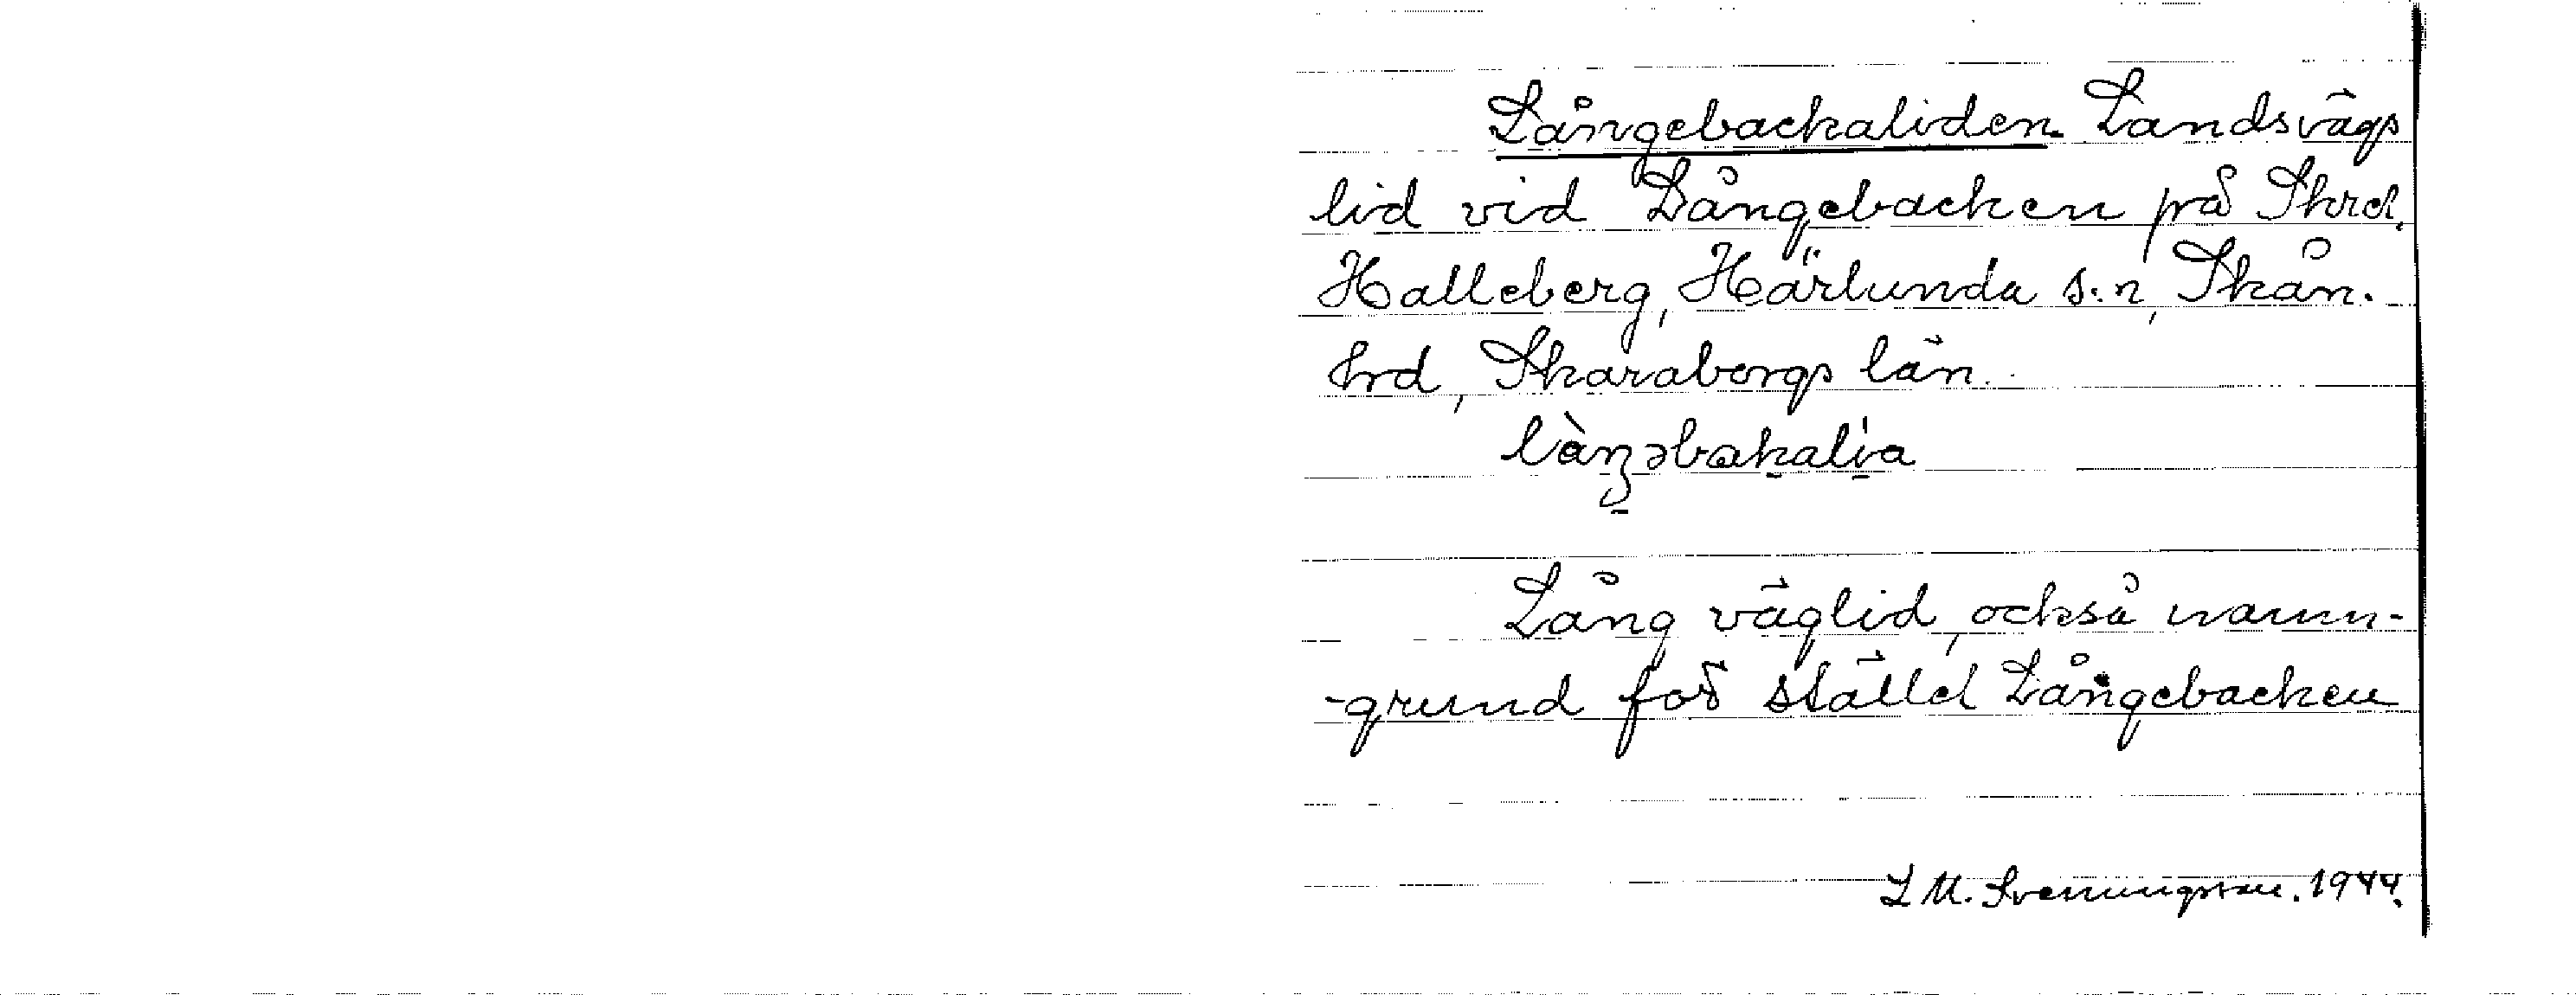 Långebackaliden. Landsvägs
lid vid Långebacken på Skrd.
Halleberg, Härlunda s:n, Skån.
hrd, Skaraborgs län.
Lång väglid, också namn-
-grund för stället Långebacken
L M. Svenungsson. 1944.